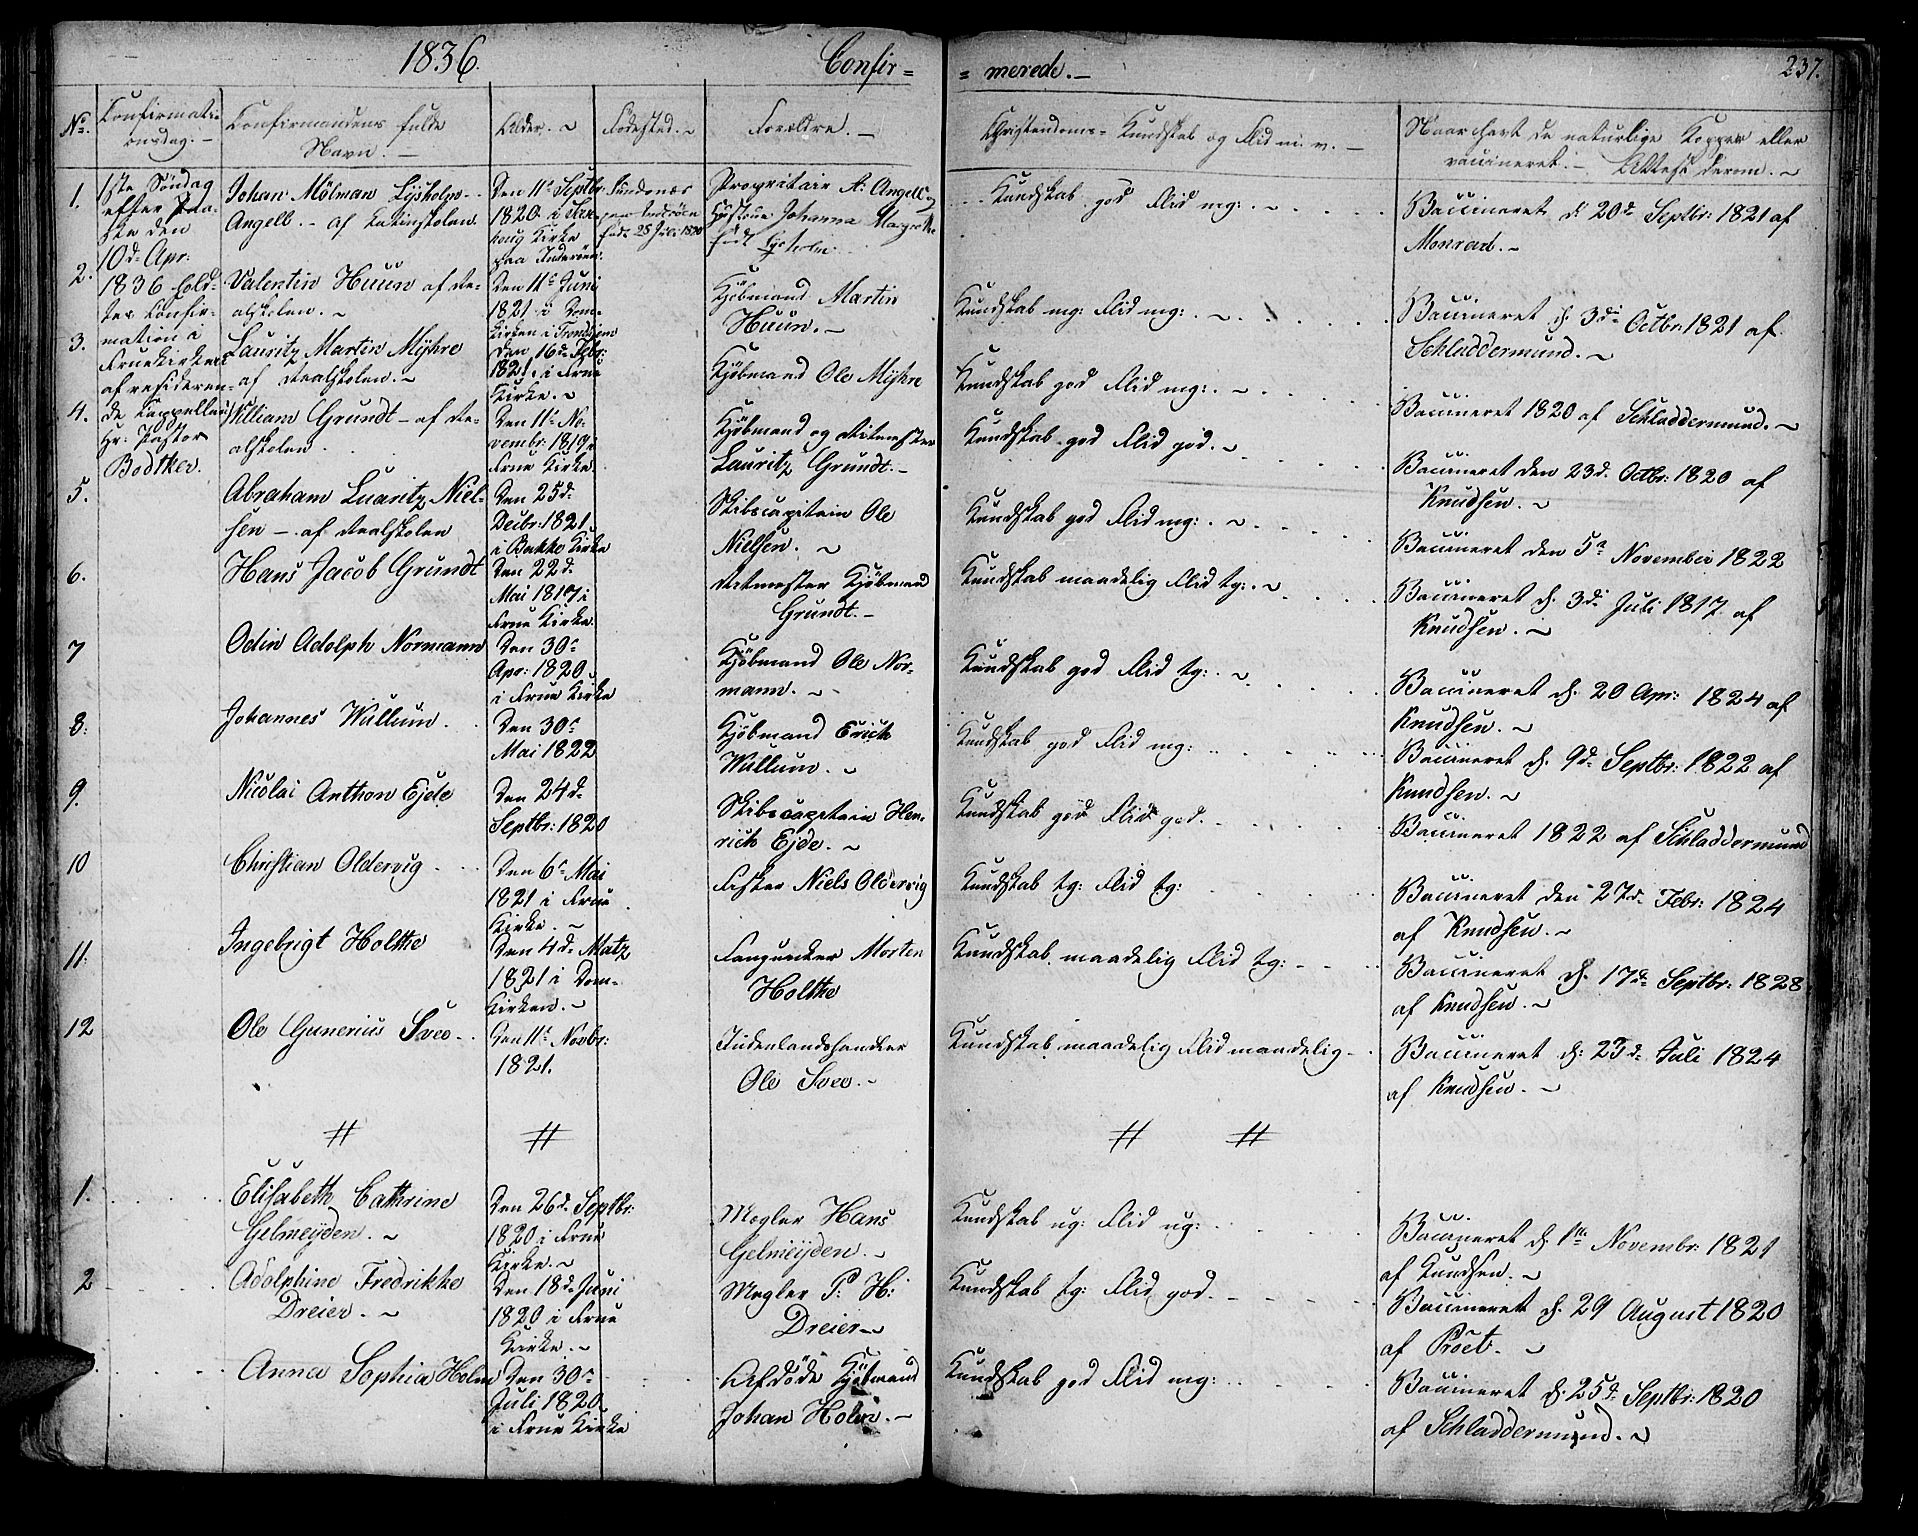 1836.
Confir=
= merede. —
237.
No.
Confirmati=
onsdag. —
Confirmandens fulde
Navn. —
Alder. ~
Födested. ~
Forældre. —
Christendoms= Kundskab og Flid m. v. —
Naar havt de naturlige Kopper eller
vaccineret. — Attest derom. ~
1ste Söndag
efter Paa=
ske den
10d Apr:
1836 hold=
tes Confir=
mation i
Fruekirken
af resideren=
de Cappellan
Hr: Pastor
Bödtker.
1.
Johan Mölman Lÿsholm
Angell. — af Latinskolen
Den 11t Septbr:
1820 i Sax=
houg Kirke
paa Inderöen.
Sundnæs
paa Inderöen
födt 28 Juli 1820
Proprietair A: Angell og
Hustrue Johanna Margrethe
födt Lysholm
Kundskab god Flid mg: ~
Vaccineret d. 20de Septbr: 1821 af
Monrad. ~
2.
Valentin Huun af Re=
alskolen. ~
Den 11t Juni
1821 i Dom=
kirken i Trondhjem
Kjöbmand Martin
Huun. ~
Kundskab mg: Flid mg: ~
Vaccineret d. 3die Octbr: 1821 af
Schladdermund. ~
3.
Lauritz Martin Mÿhre
af Realskolen. ~
Den 16de Febr:
1821. i Frue
Kirke. ~
Kjöbmand Ole Mÿhre
Kundskab god Flid mg: ~
Vaccineret 1820 af Schladdermund. ~
4.
William Grundt — af Re=
alskolen.
Den 11t No=
vembr: 1819 i
Frue Kirke
Kjöbmand og Ritmester
Lauritz Grundt. —
Kundskab god Flid god. ~
Vaccineret den 23d Octbr: 1820 af
Knudsen. ~
5.
Abraham Luaritz Niel=
sen — af Realskolen
Den 25d
Decbr: 1821
i Bakke Kirke
Skibscapitain Ole
Nielsen. ~
Kundskab god Flid mg: ~
Vaccineret den 5te November 1822
6.
Hans Jacob Grundt
Den 22d
Mai 1817 i
Frue Kirke
Ritmester Kjöbmand
Grundt. —
Kundskab maadelig Flid tg: ~
Vaccineret d. 3die Juli 1817 af
Knudsen. ~
7
Odin Adolph Normann
Den 30t
Apr: 1820
i Frue Kirke
Kjöbmand Ole Nor=
mann. ~
Kundskab god Flid tg: ~
Vaccineret d. 20 Apr: 1824 af
Knudsen. ~
8.
Johannes Wullum
Den 30t
Mai 1822
Kjöbmand Erich
Wullum. ~
Kundskab god Flid mg:
Vaccineret d. 9de Septbr: 1822 af
Knudsen. ~
9.
Nicolai Anthon Ejde
Den 24d
Septbr: 1820
Skibscapitain Hen=
rich Ejde. ~
Kundskab god Flid god.
Vaccineret 1822 af Schladdermund
10
Christian Oldervig
Den 6t Mai
1821 i Frue
Kirke. ~
Fisker Niels Oldervig
Kundskab tg: Flid tg:
Vaccineret den 27de Febr: 1824
af Knudsen. ~
11.
Ingebrigt Holthe
Den 4d Matz
1821 i Dom=
Kirken. ~
Morten
Holthe
Kundskab maadelig Flid tg:
Vaccineret d. 17de Septbr: 1828
af Knudsen. ~
12
Ole Gunerius Sveo
Den 11t Novbr:
1821.
Indenlandshandler
Ole Sveo. ~
Kundskab maadelig Flid maadelig
Vaccineret d: 23d Juli 1824
af Knudsen. ~
1.
Elisabeth Cathrine
Gelmeÿden. ~
Den 26d Septbr:
1820 i Frue
Kirke. ~
Mægler Hans
Gelmeÿden. ~
Kundskab ug: Flid ug:
Vaccineret d. 1ste Novembr: 1821
af Knudsen. ~
2
Adolphine Fredrikke
Dreier. ~
Den 18d Juni
1820 i Frue
Kirke. ~
Mægler P: H:
Dreier ~
Kundskab tg: Flid god.
Vaccineret d. 29 August 1820
af Pröet. ~
Anna Sophia Holm
Den 30t
Juli 1820
i Frue Kirke
Afdöde Kjöbmand
Johan Holm. —
Kundskab god Flid mg:
Vaccineret d. 25d Septbr: 1820
af Schladdermund. ~